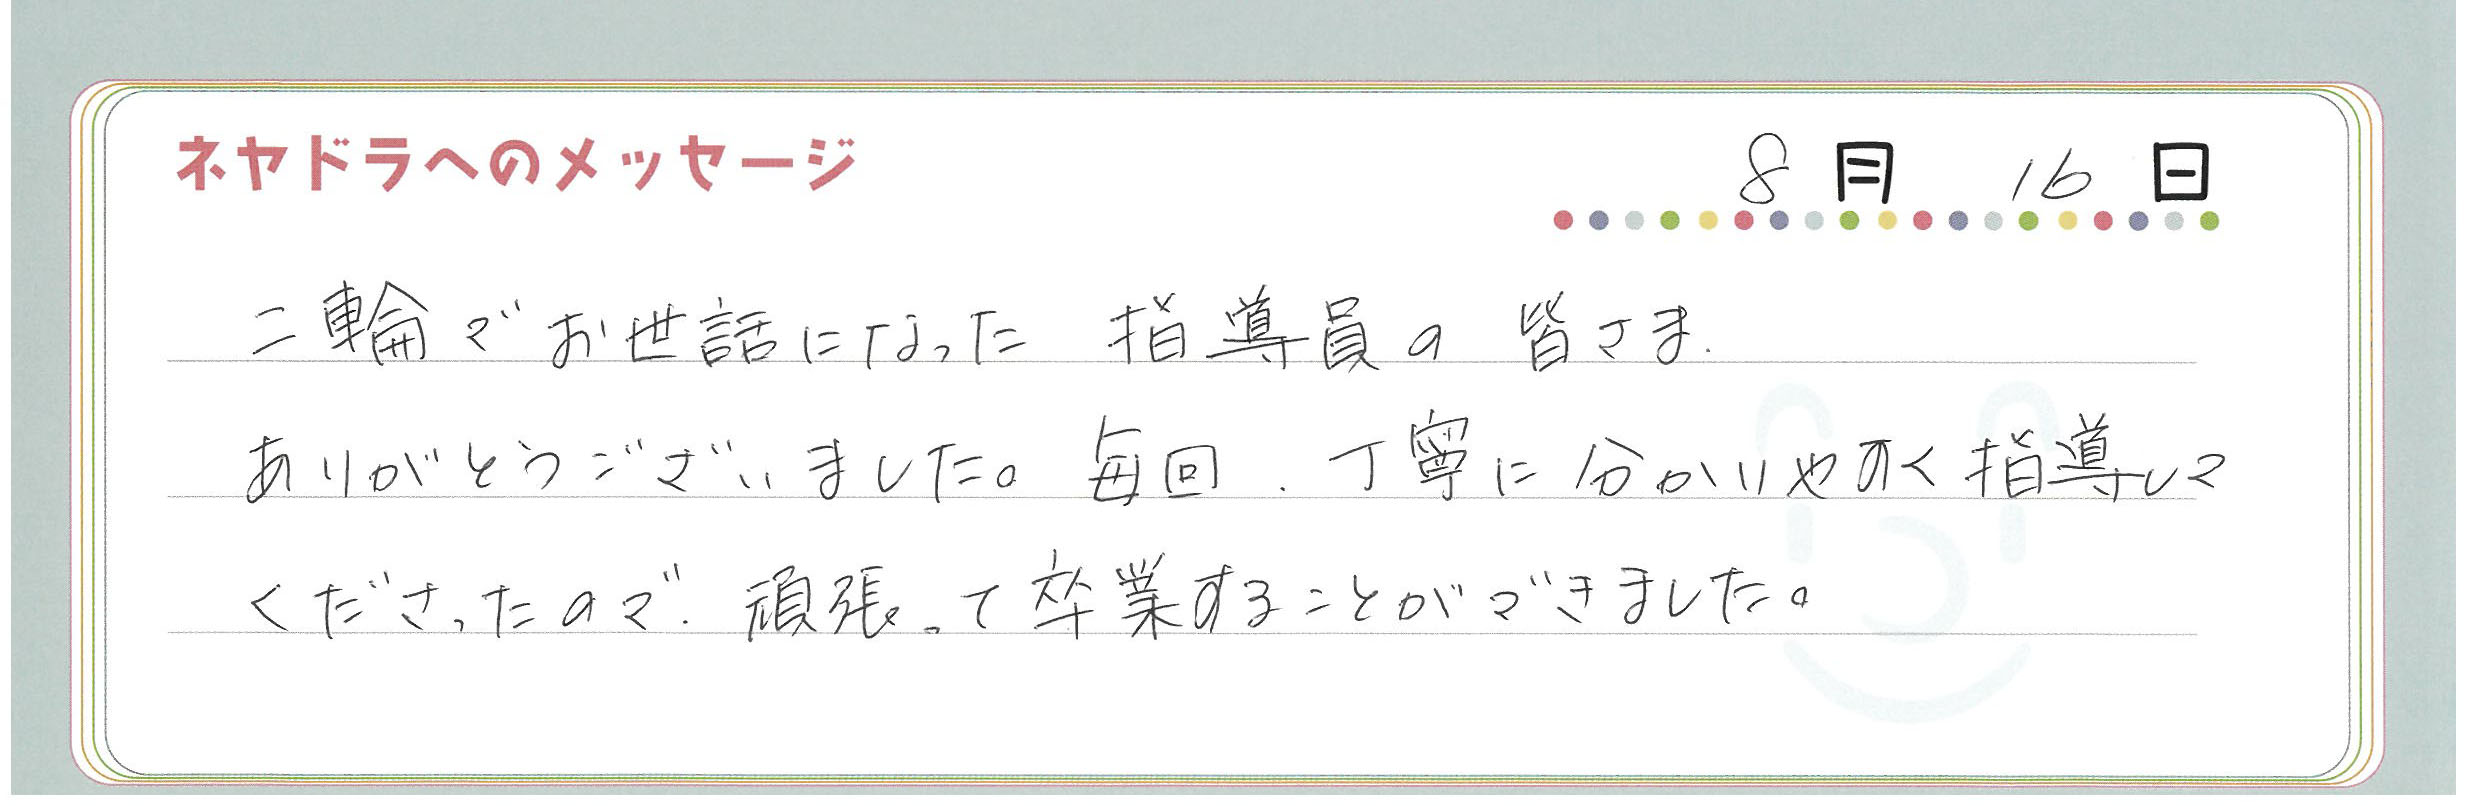 ネヤドラへのメッセージ
8月 16日
二輪でお世話になった 指導員の 皆さま.
ありがとうございました。毎回、丁寧に分かりやすく指導して
くださったので、頑張って卒業することができました。